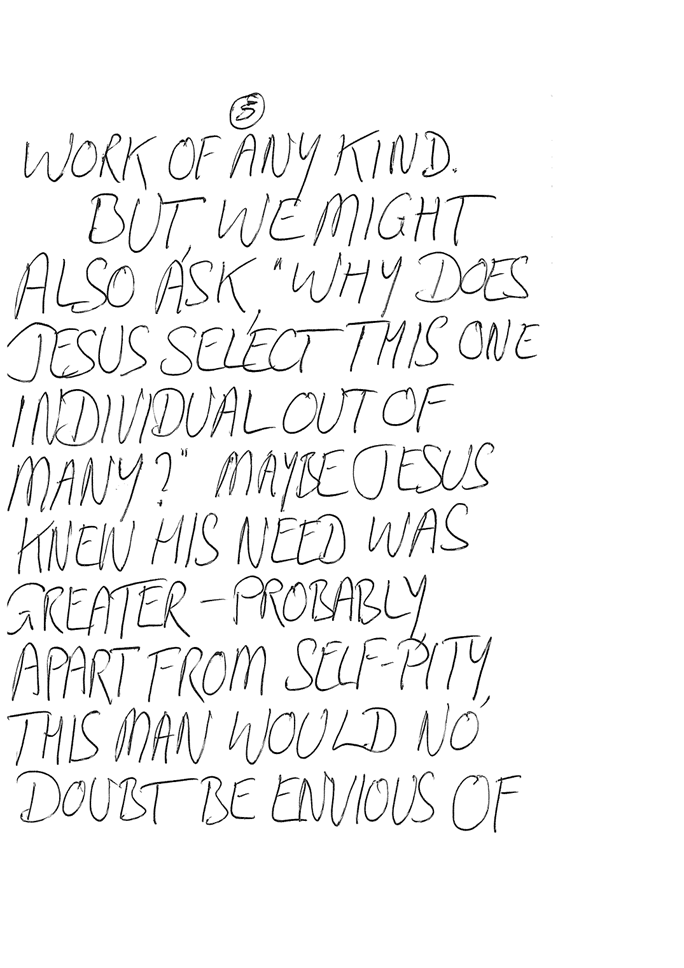 5
WORK OF ANY KIND.
BUT, WE MIGHT
ALSO ASK, "WHY DOES
JESUS SELECT THIS ONE
INDIVIDUAL OUT OF
MANY?" MAYBE JESUS
KNEW HIS NEED WAS
GREATER – PROBABLY,
APART FROM SELF-PITY,
THIS MAN WOULD NO
DOUBT BE ENVIOUS OF